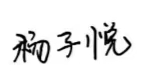 杨子悦